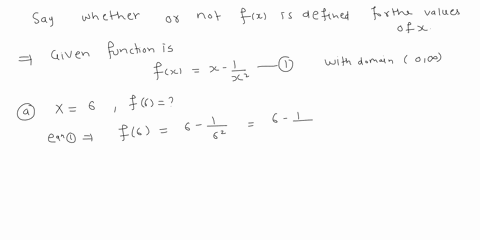 Say whether or not f(x) is defined for the values
of x.
⇒ Given function is
f(x) = x - 1/x² — ① with domain (0,∞)
ⓐ x = 6 , f(6) = ?
eqn① ⇒ f(6) = 6 - 1/6² = 6 - 1/